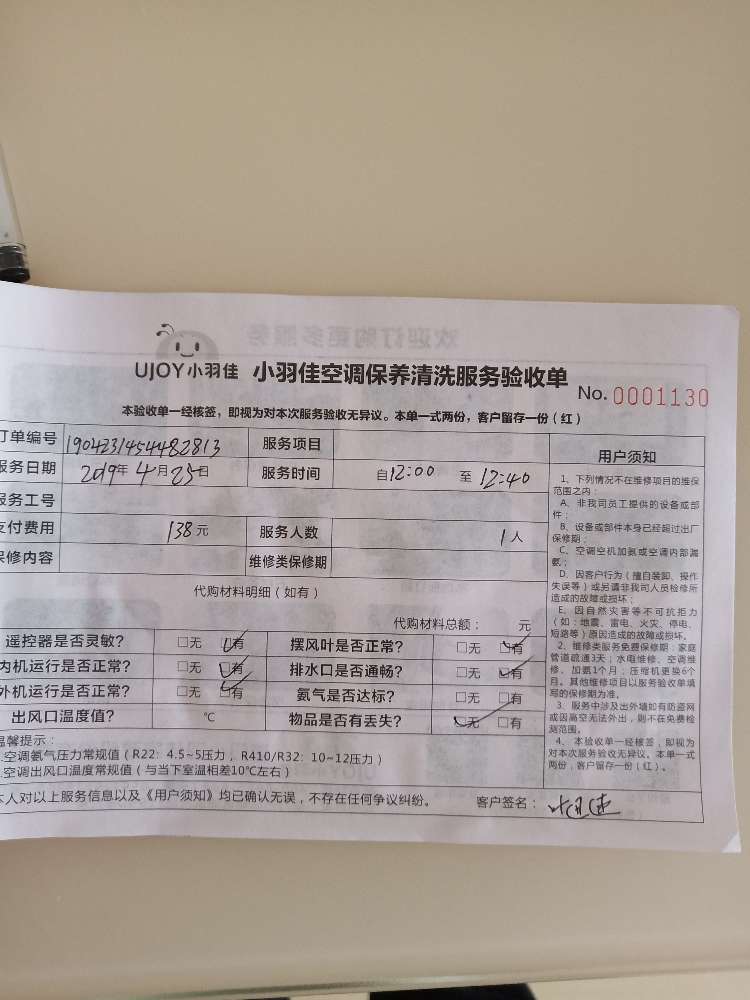 UJOY小羽佳 小羽佳空调保养清洗服务验收单 No. 0001130
本验收单一经核签，即视为对本次服务验收无异议。本单一式两份，客户留存一份（红）
订单编号 1904231454482813 服务项目
服务日期 2019年 4月 25日 服务时间 自12:00 至 12:40
服务工号
支付费用 138元 服务人数 1人
保修内容 维修类保修期
代购材料明细（如有）
代购材料总额： 元
遥控器是否灵敏? □无 □有 摆风叶是否正常? □无 □有
内机运行是否正常? □无 □有 排水口是否通畅? □无 □有
外机运行是否正常? □无 □有 氨气是否达标? □无 □有
出风口温度值? ℃ 物品是否有丢失? □无 □有
温馨提示：
.空调氨气压力常规值（R22：4.5~5压力，R410/R32：10~12压力）
.空调出风口温度常规值（与当下室温相差10℃左右）
本人对以上服务信息以及《用户须知》均已确认无误，不存在任何争议纠纷。 客户签名：
用户须知
1、下列情况不在维修项目的维保
范围之内：
A、非我司员工提供的设备或部
件；
B、设备或部件本身已经超过出厂
保修期；
C、空调空机加氨或空调内部漏
氨；
D、因客户行为（擅自装卸、操作
失误等）或另请非我司人员检修所
造成的故障或损坏；
E、因自然灾害等不可抗拒力
（如：地震、雷电、火灾、停电、
短路等）原因造成的故障或损坏。
2、维修类服务免费保修期：家庭
管道疏通3天；水电维修、空调维
修、加氨1个月；压缩机更换6个
月。其他维修项目以服务验收单填
写的保修期为准。
3、服务中涉及出外墙如有防盗网
或因高空无法外出，则不在免费检
测范围。
4、本验收单一经核签，即视为
对本次服务验收无异议。本单一式
两份，客户留存一份（红）。
欢迎订购更多服务